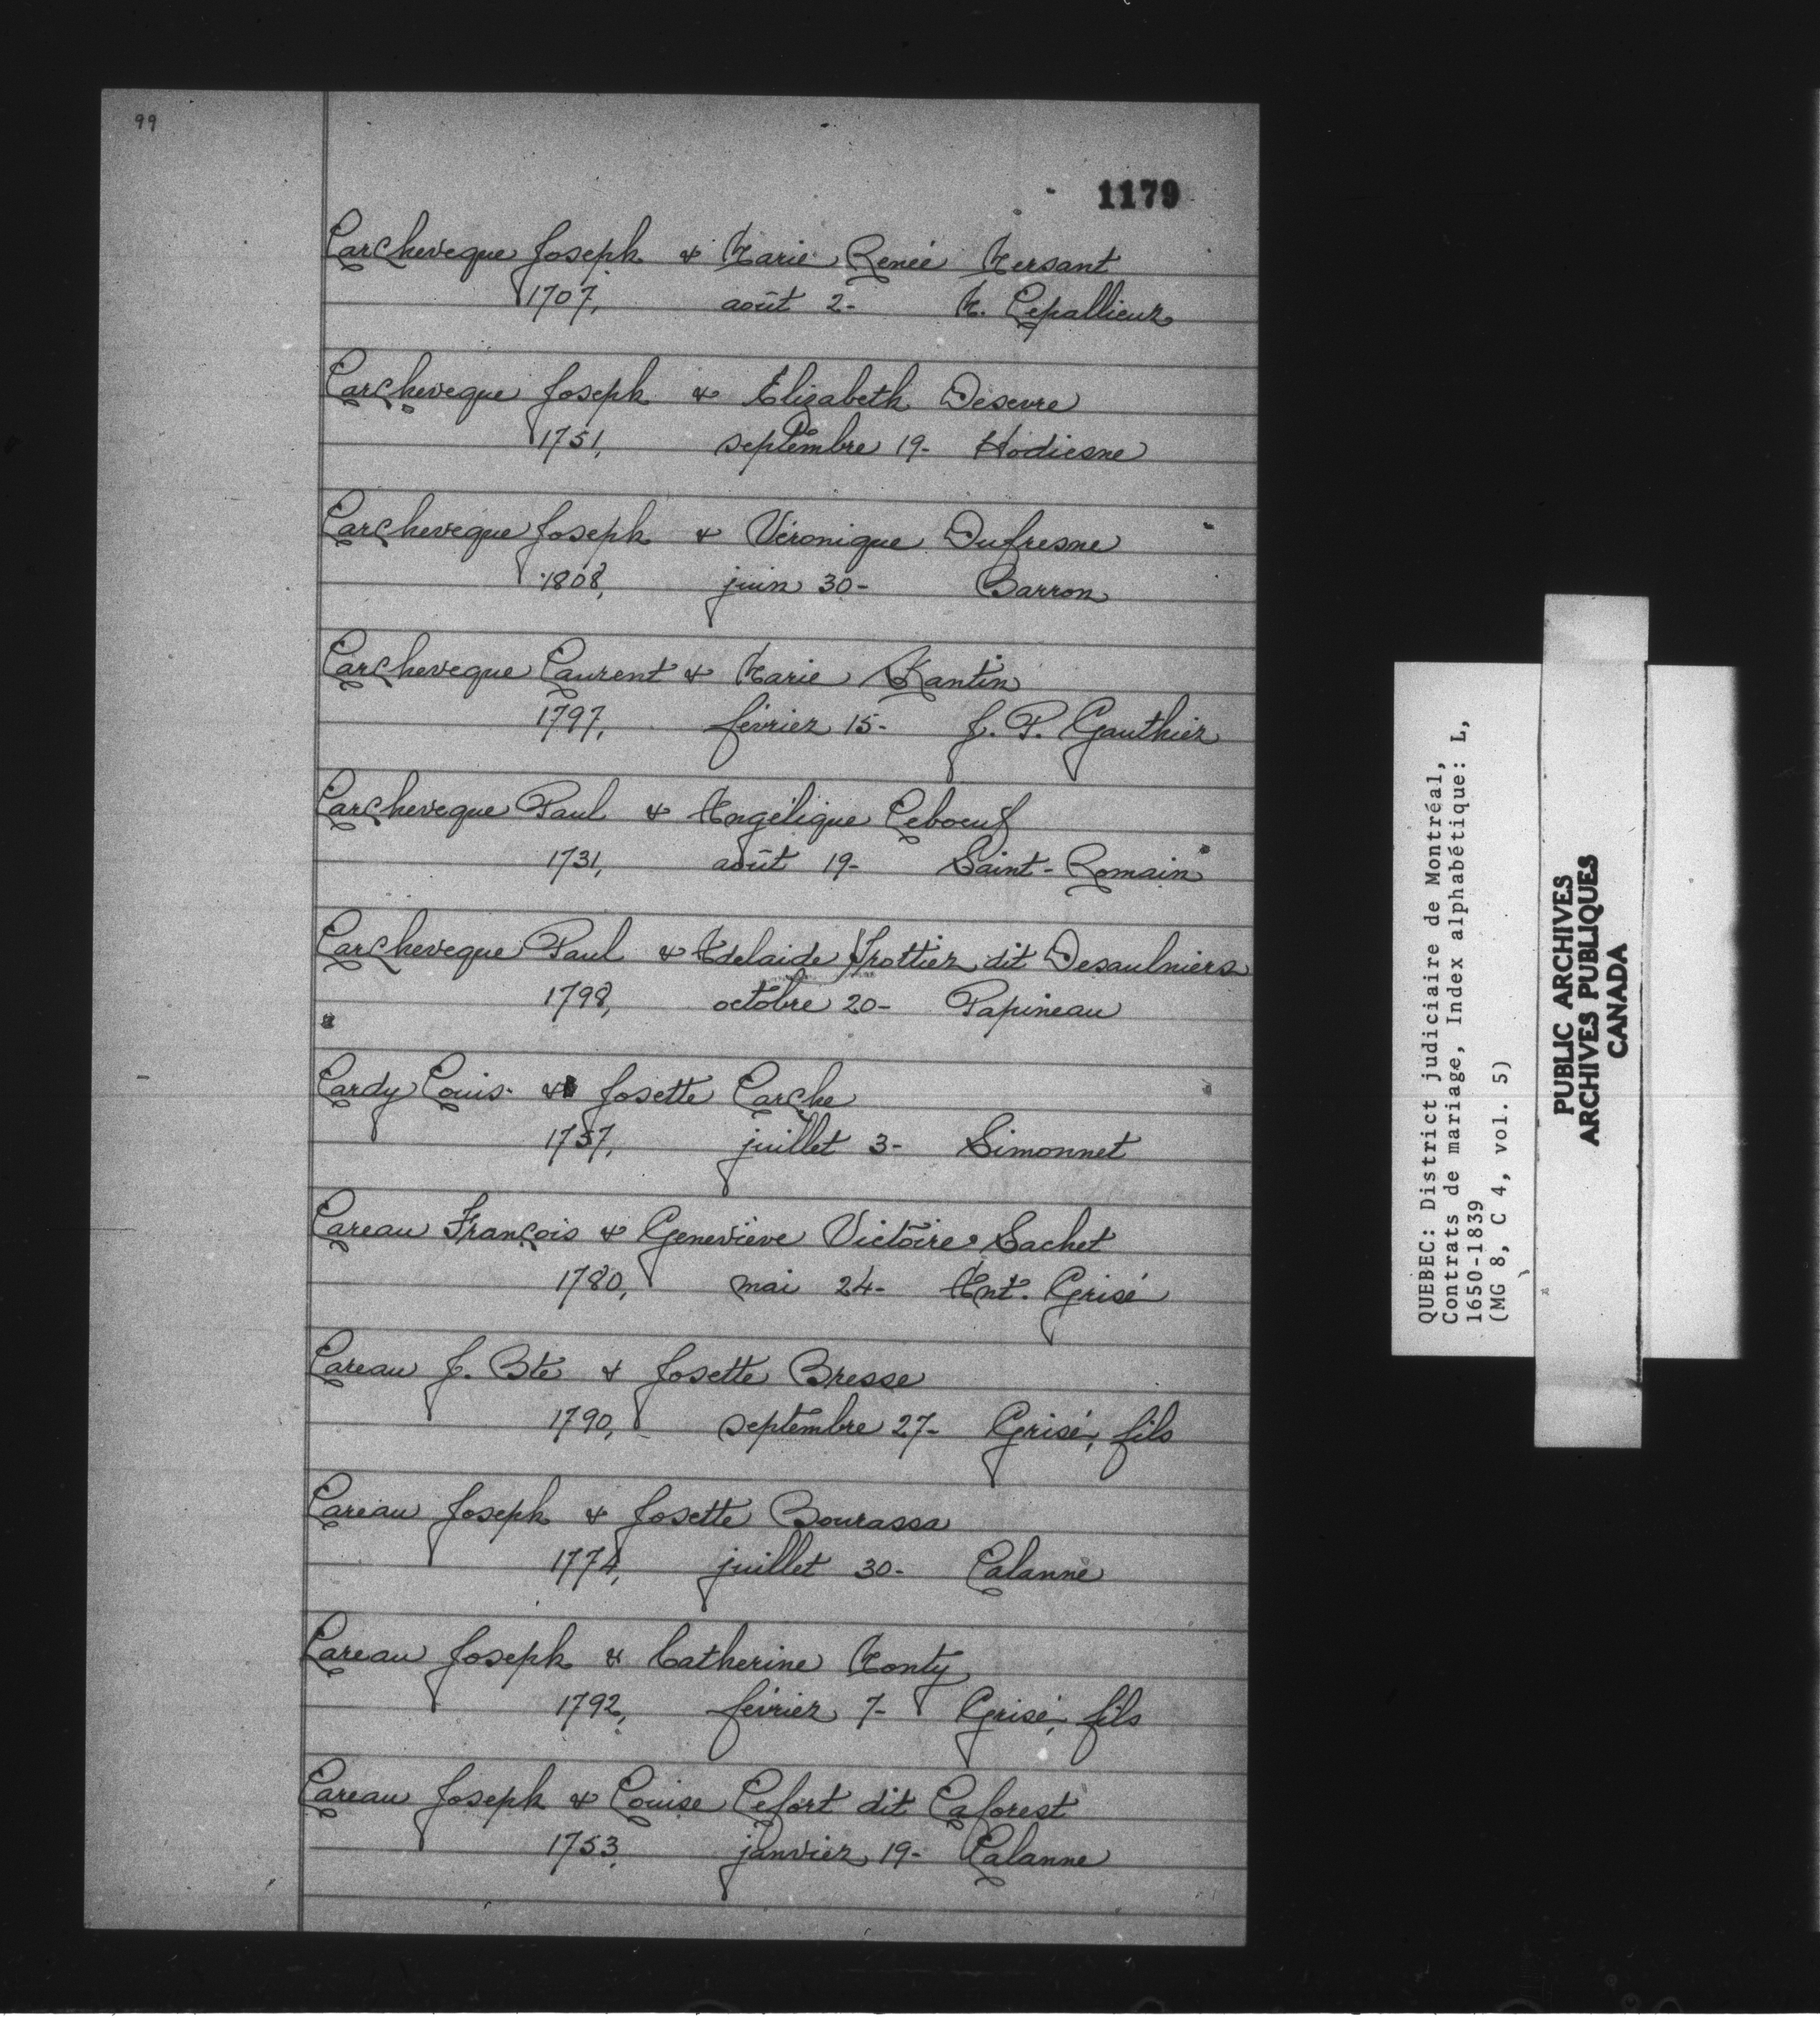 99
1179
Larcheveque Joseph & Marie Renée Mersant
1707, août 2- M. Lepallieur
Larcheveque Joseph & Elizabeth Desevre
1751, septembre 19- Hodiesne
Larcheveque Joseph & Véronique Dufresne
1808, juin 30- Barron
Larcheveque Laurent & Marie Nantin
1797, février 15- J. P. Gauthier
Larcheveque Paul & Angélique Leboeuf
1731, août 19- Saint-Romain
Larcheveque Paul & Adelaide Trottier dit Desaulniers
1798, octobre 20- Papineau
Lardy Louis & Josette Larche
1757, juillet 3- Simonnet
Lareau François & Geneviève Victoire Sachet
1780, mai 24- Ant. Grisé
Lareau J. Bte & Josette Bresse
1790, septembre 27- Grisé, fils
Lareau Joseph & Josette Bourassa
1774, juillet 30- Lalanne
Lareau Joseph & Catherine Monty
1792, février 7- Grisé, fils
Lareau Joseph & Louise Lefort dit Laforest
1753, janvier 19- Lalanne
QUEBEC: District judiciaire de Montréal,
Contrats de mariage, Index alphabétique: L,
1650-1839
(MG 8, C 4, vol. 5)
PUBLIC ARCHIVES
ARCHIVES PUBLIQUES
CANADA